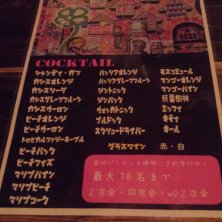 COCKTAIL
シャンディ・ガフ
カシスオレンジ
カシスソーダ
カシスグレープフルーツ
カシスウーロン
ピーチオレンジ
ピーチウーロン
トロピカルファジーネーブル
ピーチバック
ピーチフィズ
マリブパイン
マリブピーチ
マリブコーク
パッソアオレンジ
パッソアグレープフルーツ
ジントニック
ジンバック
ウォッカトニック
ブルドック
スクリュードライバー
グラスワイン 赤・白
モスコミュール
マンゴーオレンジ
マンゴーパイン
照葉樹林
ミッドブイ
キティ
キール
最大70名まで
2次会・同窓会・wd2次会